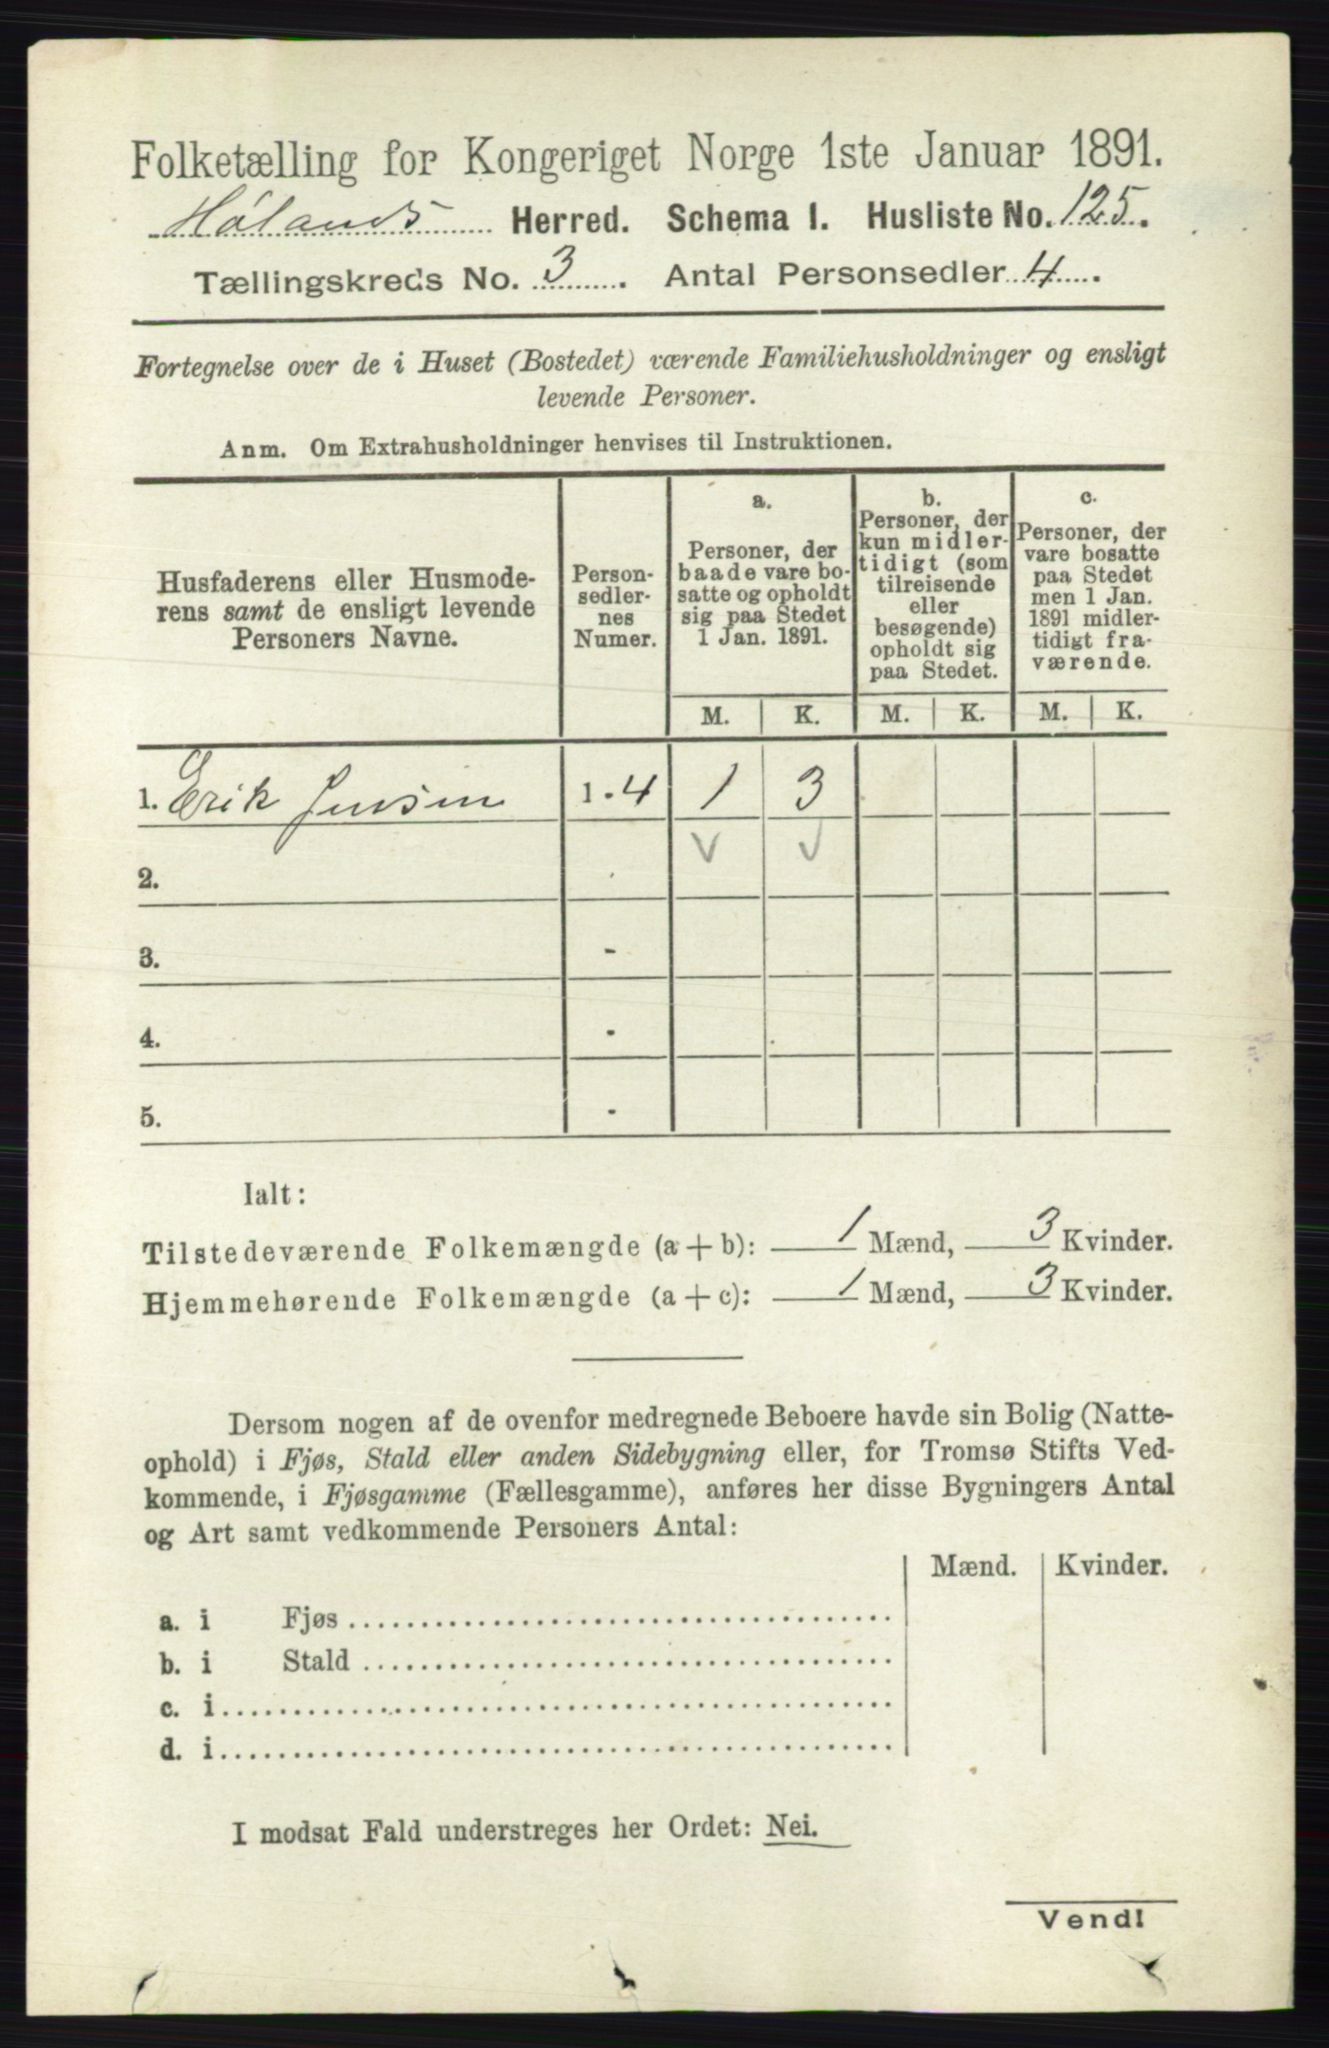 Folketælling for Kongeriget Norge 1ste Januar 1891.
Hølands Herred. Schema I. Husliste No. 125.
Tællingskreds No. 3. Antal Personsedler 4.
Fortegnelse over de i Huset (Bostedet) værende Familiehusholdninger og ensligt
levende Personer.
Anm. Om Extrahusholdninger henvises til Instruktionen.
Husfaderens eller Husmode-
rens samt de ensligt levende
Personers Navne.
Person-
sedler-
nes
Numer.
a.
Personer, der
baade vare bo-
satte og opholdt
sig paa Stedet
1 Jan. 1891.
b.
Personer, der
kun midler-
tidigt (som
tilreisende
eller
besøgende)
opholdt sig
paa Stedet.
c.
Personer, der
vare bosatte
paa Stedet
men 1 Jan.
1891 midler-
tidigt fra-
værende.
M. K. M. K. M. K.
1. Erik Jensen 1-4 1 3
2.
3. -
4. -
5. -
Ialt:
Tilstedeværende Folkemængde (a + b): 1 Mænd, 3 Kvinder.
Hjemmehørende Folkemængde (a + c): 1 Mænd, 3 Kvinder.
Dersom nogen af de ovenfor medregnede Beboere havde sin Bolig (Natte-
ophold) i Fjøs, Stald eller anden Sidebygning eller, for Tromsø Stifts Ved-
kommende, i Fjøsgamme (Fællesgamme), anføres her disse Bygningers Antal
og Art samt vedkommende Personers Antal:
Mænd. Kvinder.
a. i Fjøs
b. i Stald
c. i
d. i
I modsat Fald understreges her Ordet: Nei.
Vend!